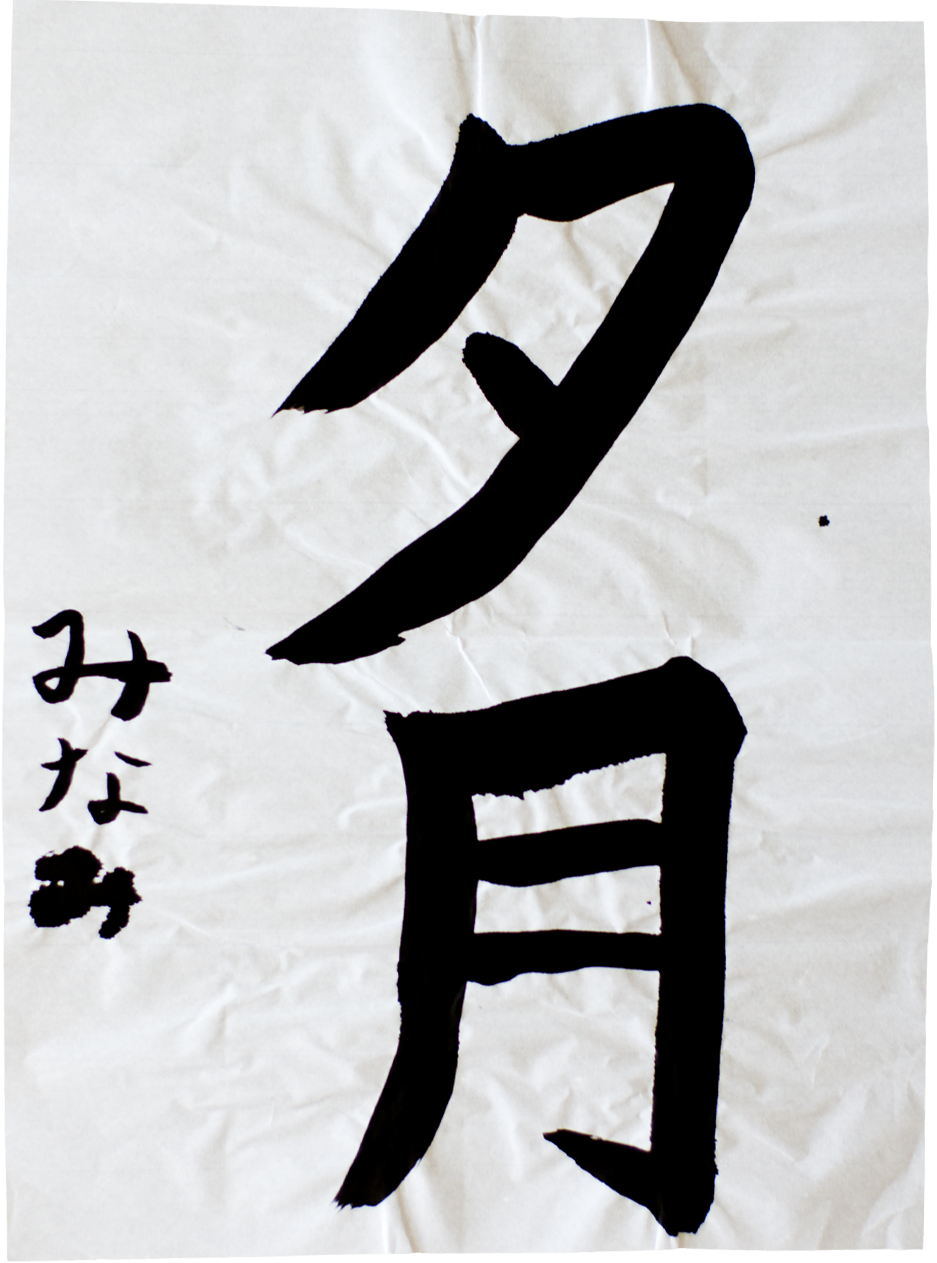 夕月
みなみ